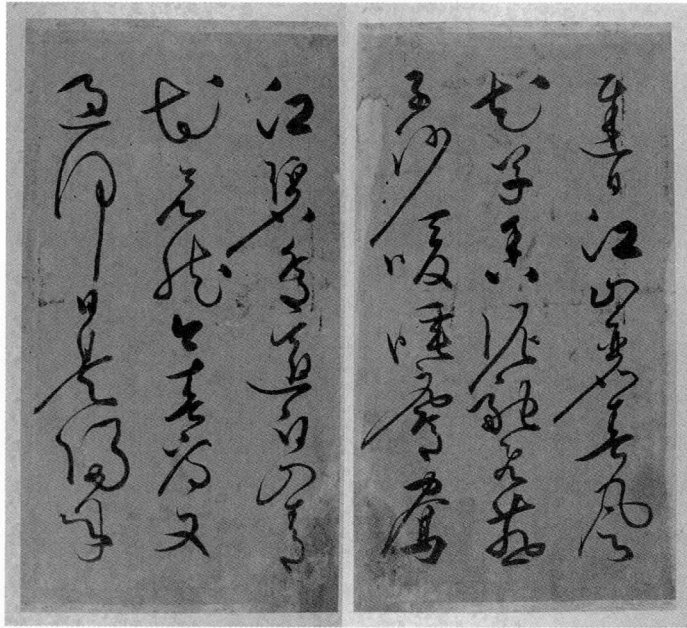 遲日江山麗春風
花草香泥融飛燕
子沙暖睡鴛鴦
江碧鳥逾白山青
花欲然今春看又
過何日是歸年